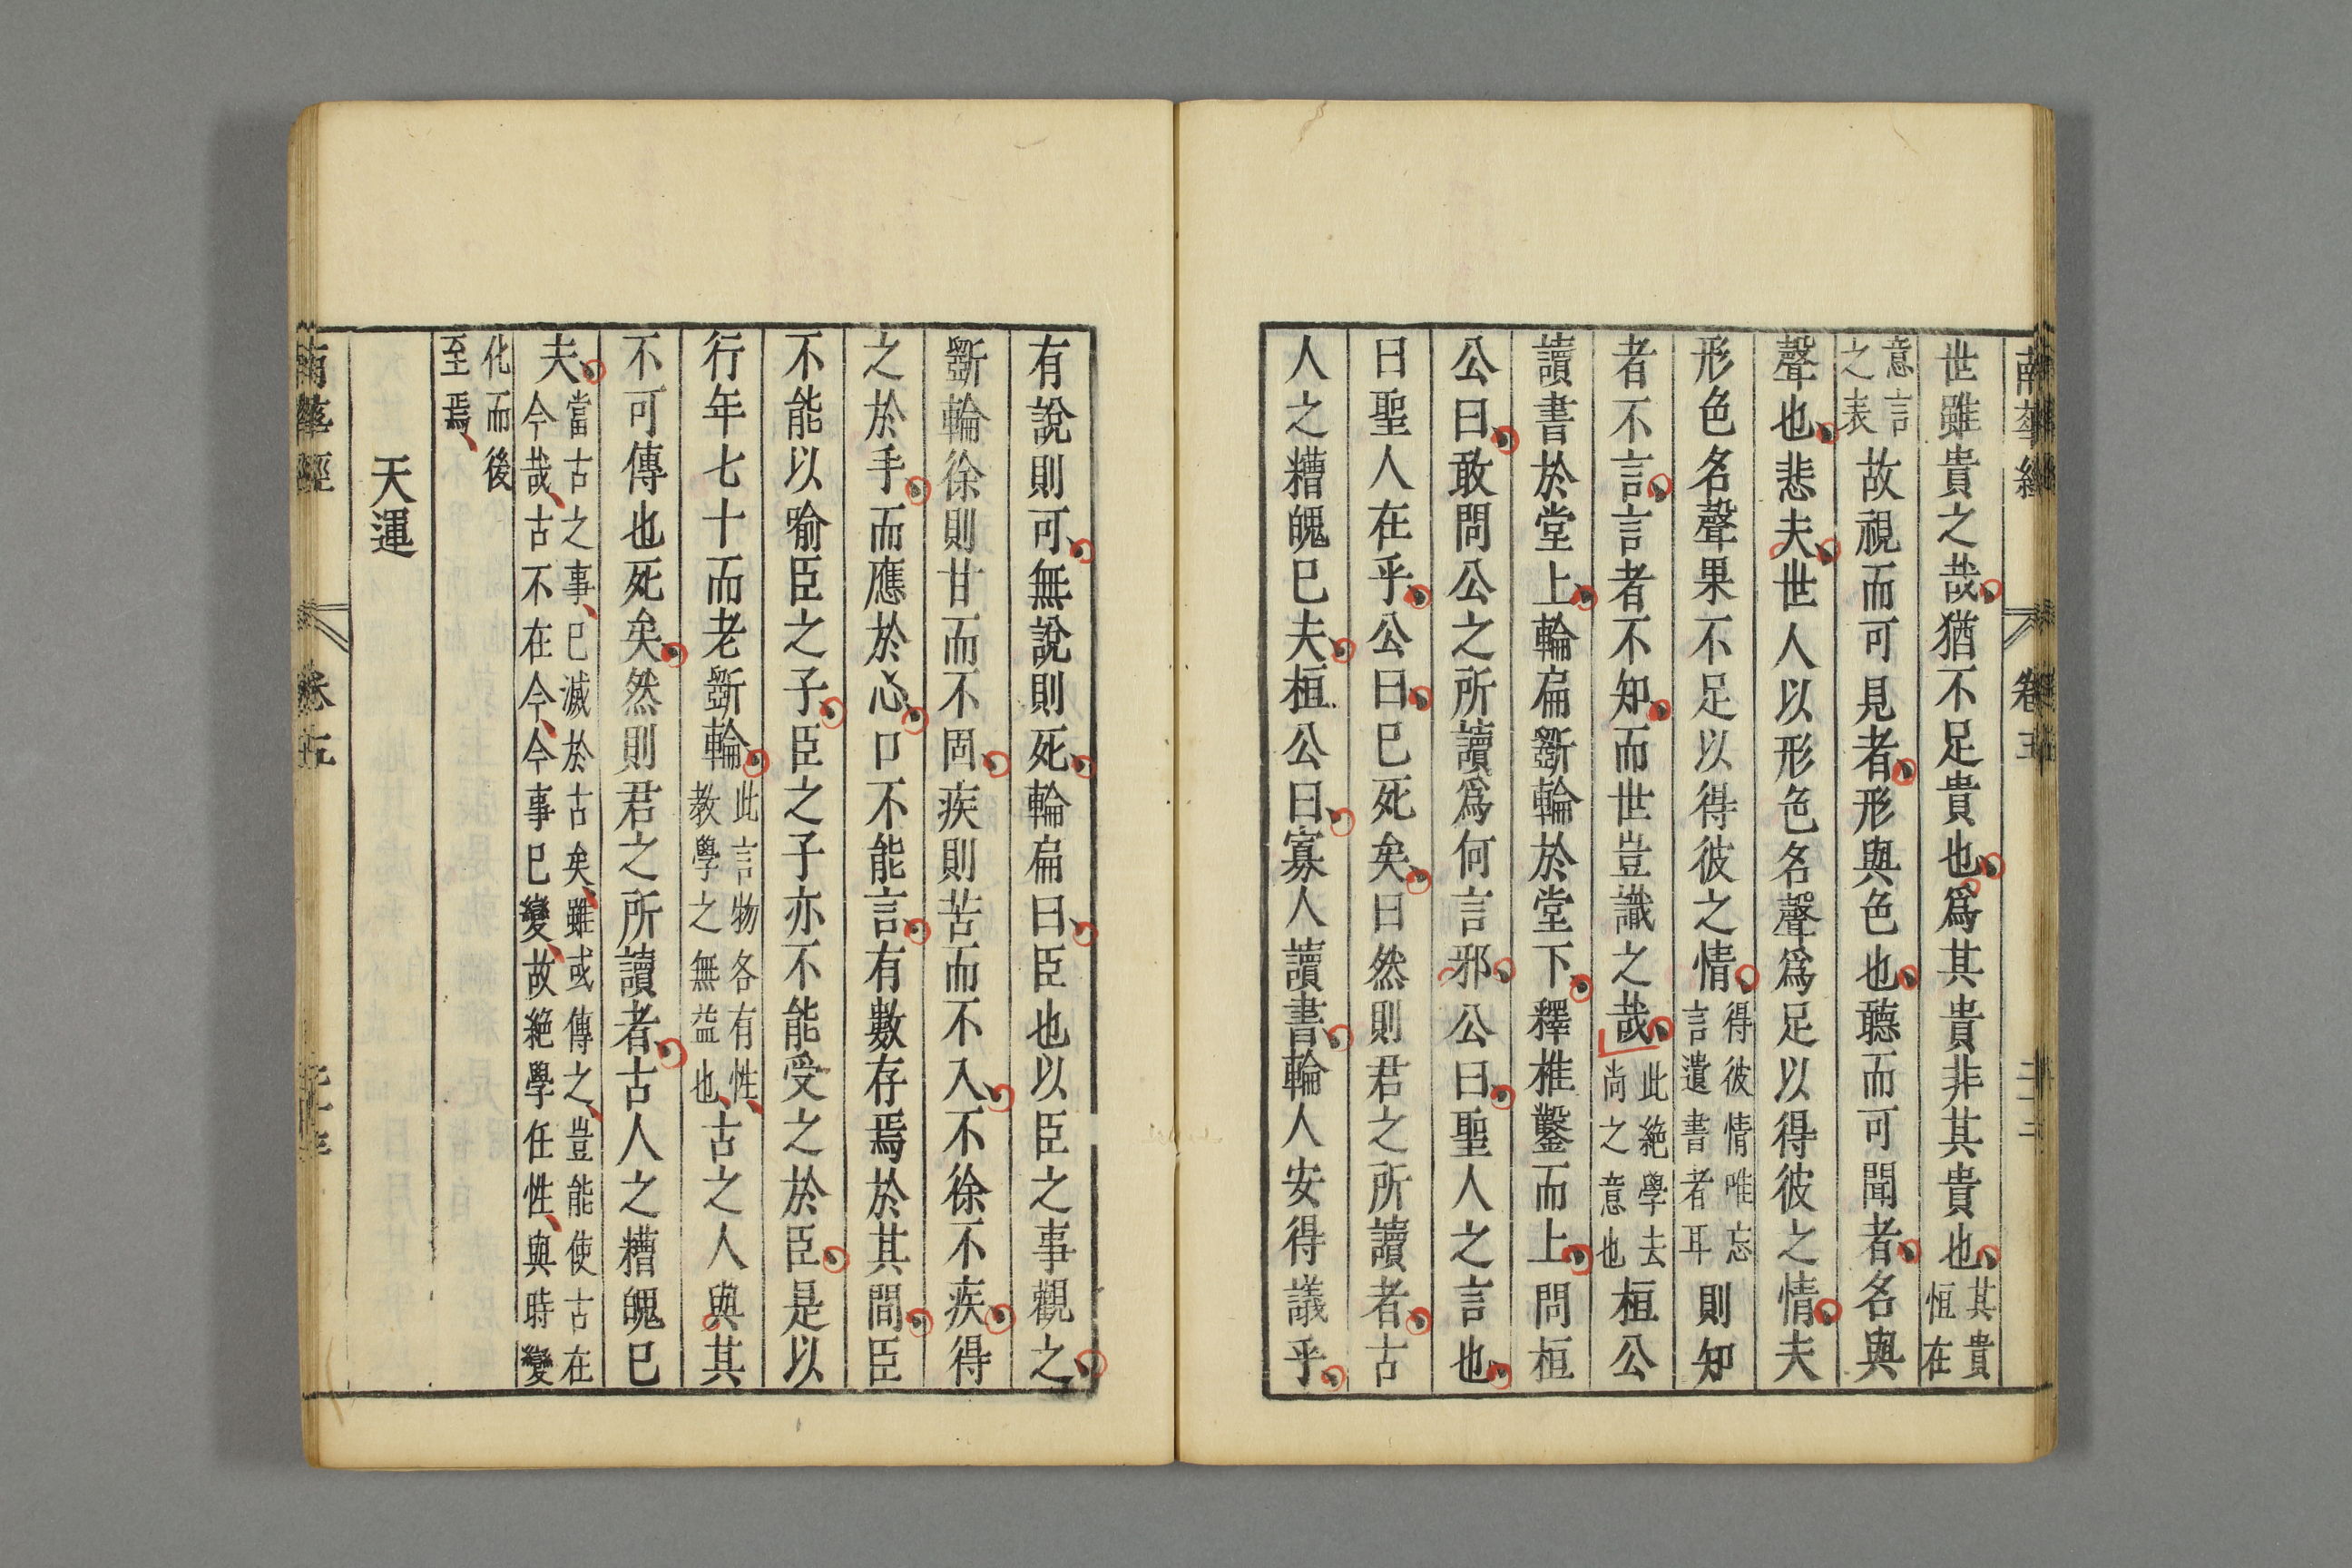 南華經 卷五
世雖貴之哉猶不足貴也爲其貴非其貴也其貴恒在
意言之表故視而可見者形與色也聽而可聞者名與
聲也悲夫世人以形色名聲爲足以得彼之情夫
形色名聲果不足以得彼之情得彼情唯忘言遺書者耳則知
者不言言者不知而世豈識之哉此絶學去尚之意也桓公
讀書於堂上輪扁斵輪於堂下釋椎鑿而上問桓
公曰敢問公之所讀爲何言邪公曰聖人之言也
曰聖人在乎公曰已死矣曰然則君之所讀者古
人之糟魄已夫桓公曰寡人讀書輪人安得議乎
有說則可無說則死輪扁曰臣也以臣之事觀之
斵輪徐則甘而不固疾則苦而不入不徐不疾得
之於手而應於心口不能言有數存焉於其間臣
不能以喻臣之子臣之子亦不能受之於臣是以
行年七十而老斵輪此言物各有性教學之無益也古之人與其
不可傳也死矣然則君之所讀者古人之糟魄已
夫當古之事已滅於古矣雖或傳之豈能使古在今哉古不在今今事已變故絶學任性與時變
化而後至焉
天運
南華經 卷五